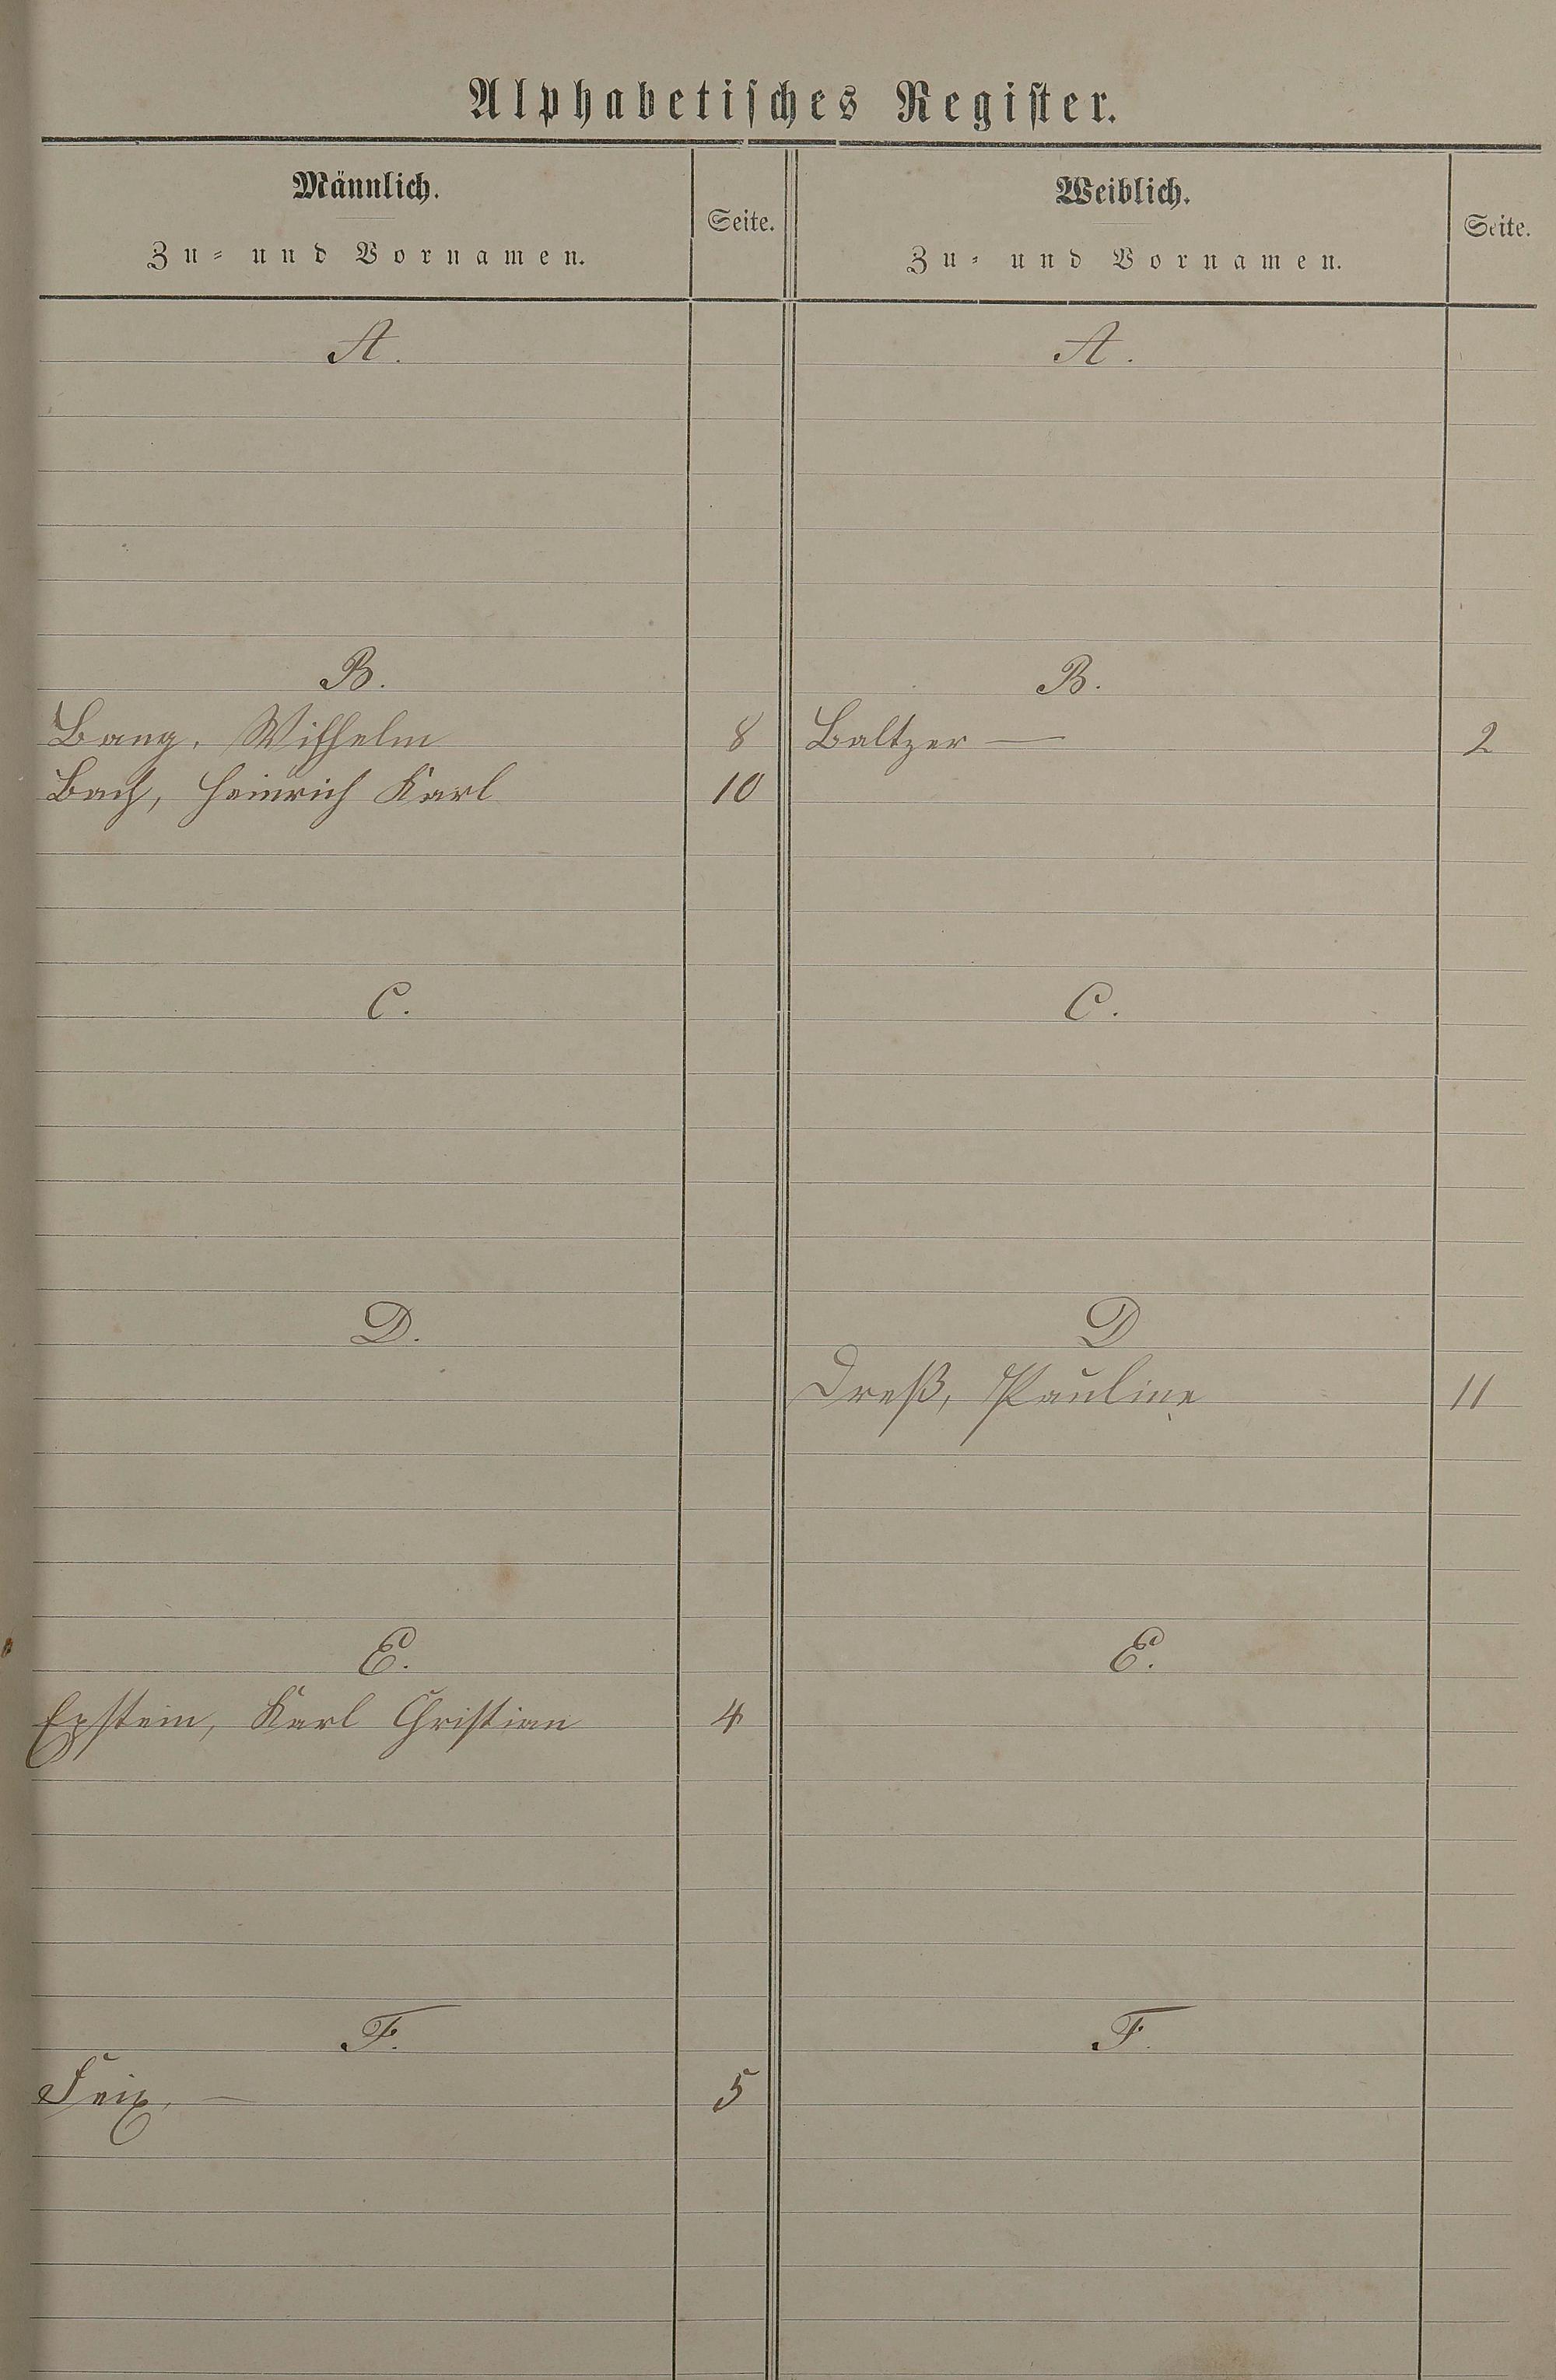 Alphabetisches Register.
Männlich. Seite. Weiblich. Seite.
Zu- und Vornamen. Zu- und Vornamen.
A. A.
B. B.
Bang, Wilhelm 8 Baltzer — 2
Bach, Heinrich Karl 10
C. C.
D. D
Dreß, Pauline 11
E. E.
Epstein, Karl Christian 4
F. F.
Feix, — 5